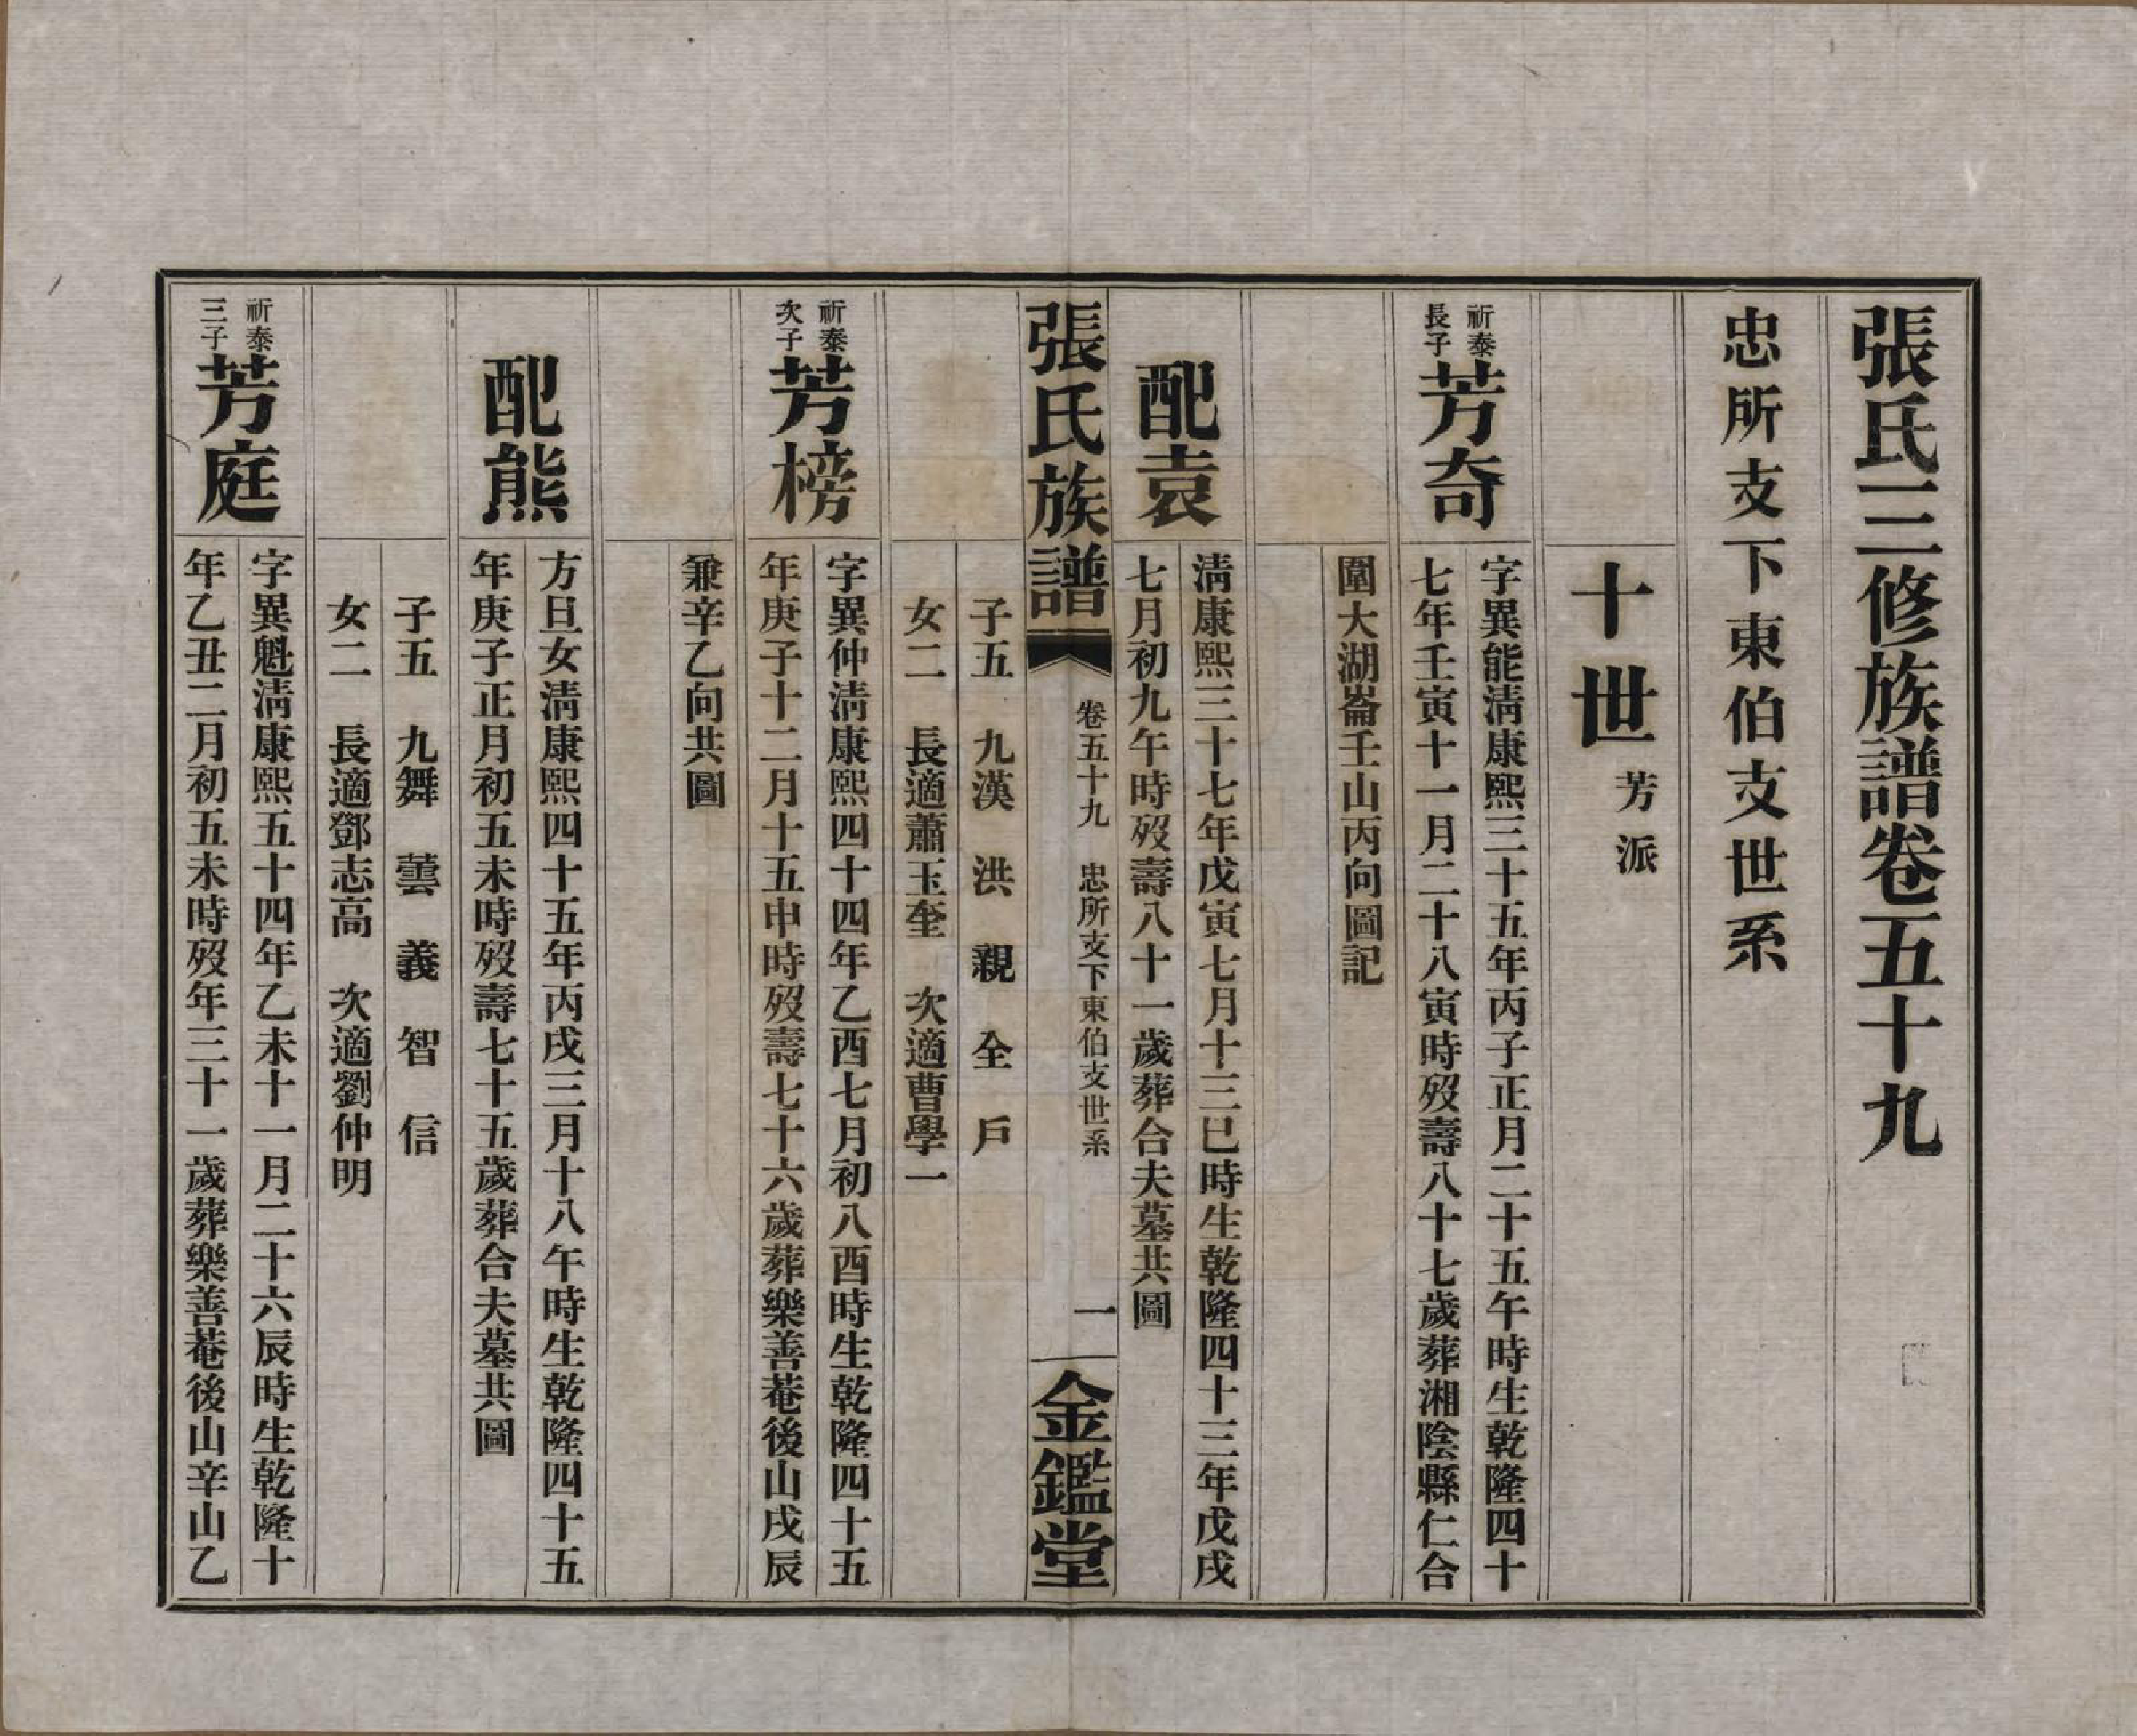 張氏三修族譜卷五十九
忠所支下東伯支世系
十世芳派
祈泰
長子
芳奇
字異能淸康熙三十五年丙子正月二十五午時生乾隆四十
七年壬寅十一月二十八寅時歿壽八十七歲葬湘陰縣仁合
圍大湖崙壬山丙向圖記
配袁
淸康熙三十七年戊寅七月十三巳時生乾隆四十三年戊戌
七月初九午時歿壽八十一歲葬合夫墓共圖
張氏族譜
卷五十九 忠所支下東伯支世系
一
金鑑堂
子五 九漢 洪 親 全 戶
女二 長適蕭玉奎 次適曹學一
祈泰
次子
芳榜
字異仲淸康熙四十四年乙酉七月初八酉時生乾隆四十五
年庚子十二月十五申時歿壽七十六歲葬樂善菴後山戌辰
兼辛乙向共圖
配熊
方旦女淸康熙四十五年丙戌三月十八午時生乾隆四十五
年庚子正月初五未時歿壽七十五歲葬合夫墓共圖
子五 九舞 蕓 義 智 信
女二 長適鄧志高 次適劉仲明
祈泰
三子
芳庭
字異魁淸康熙五十四年乙未十一月二十六辰時生乾隆十
年乙丑二月初五未時歿年三十一歲葬樂善菴後山辛山乙